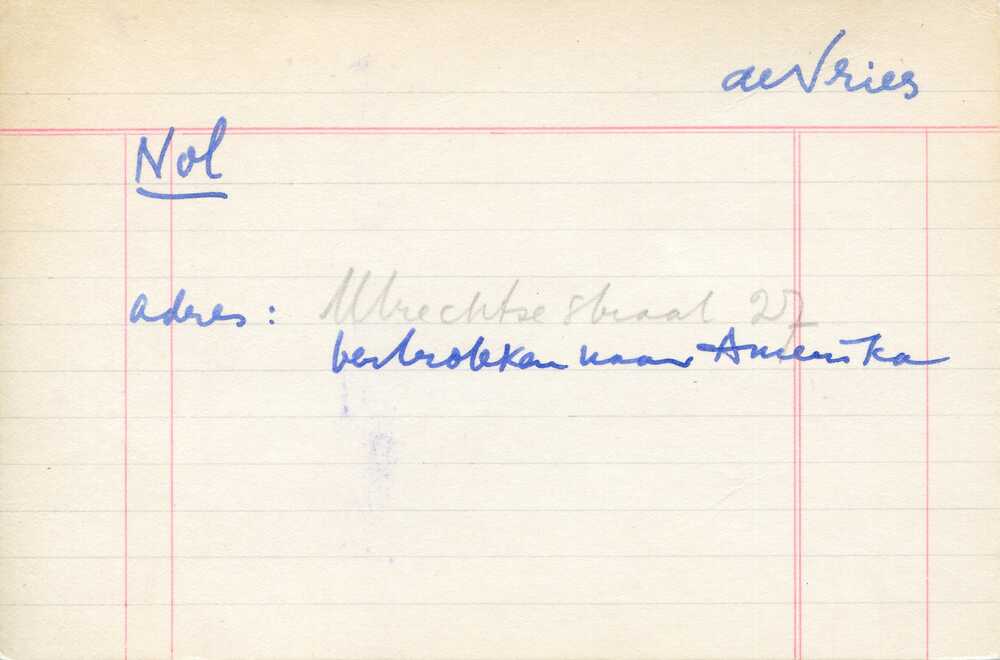 de Vries
Nol
adres: Utrechtsestraat 27
vertrokken naar Amerika